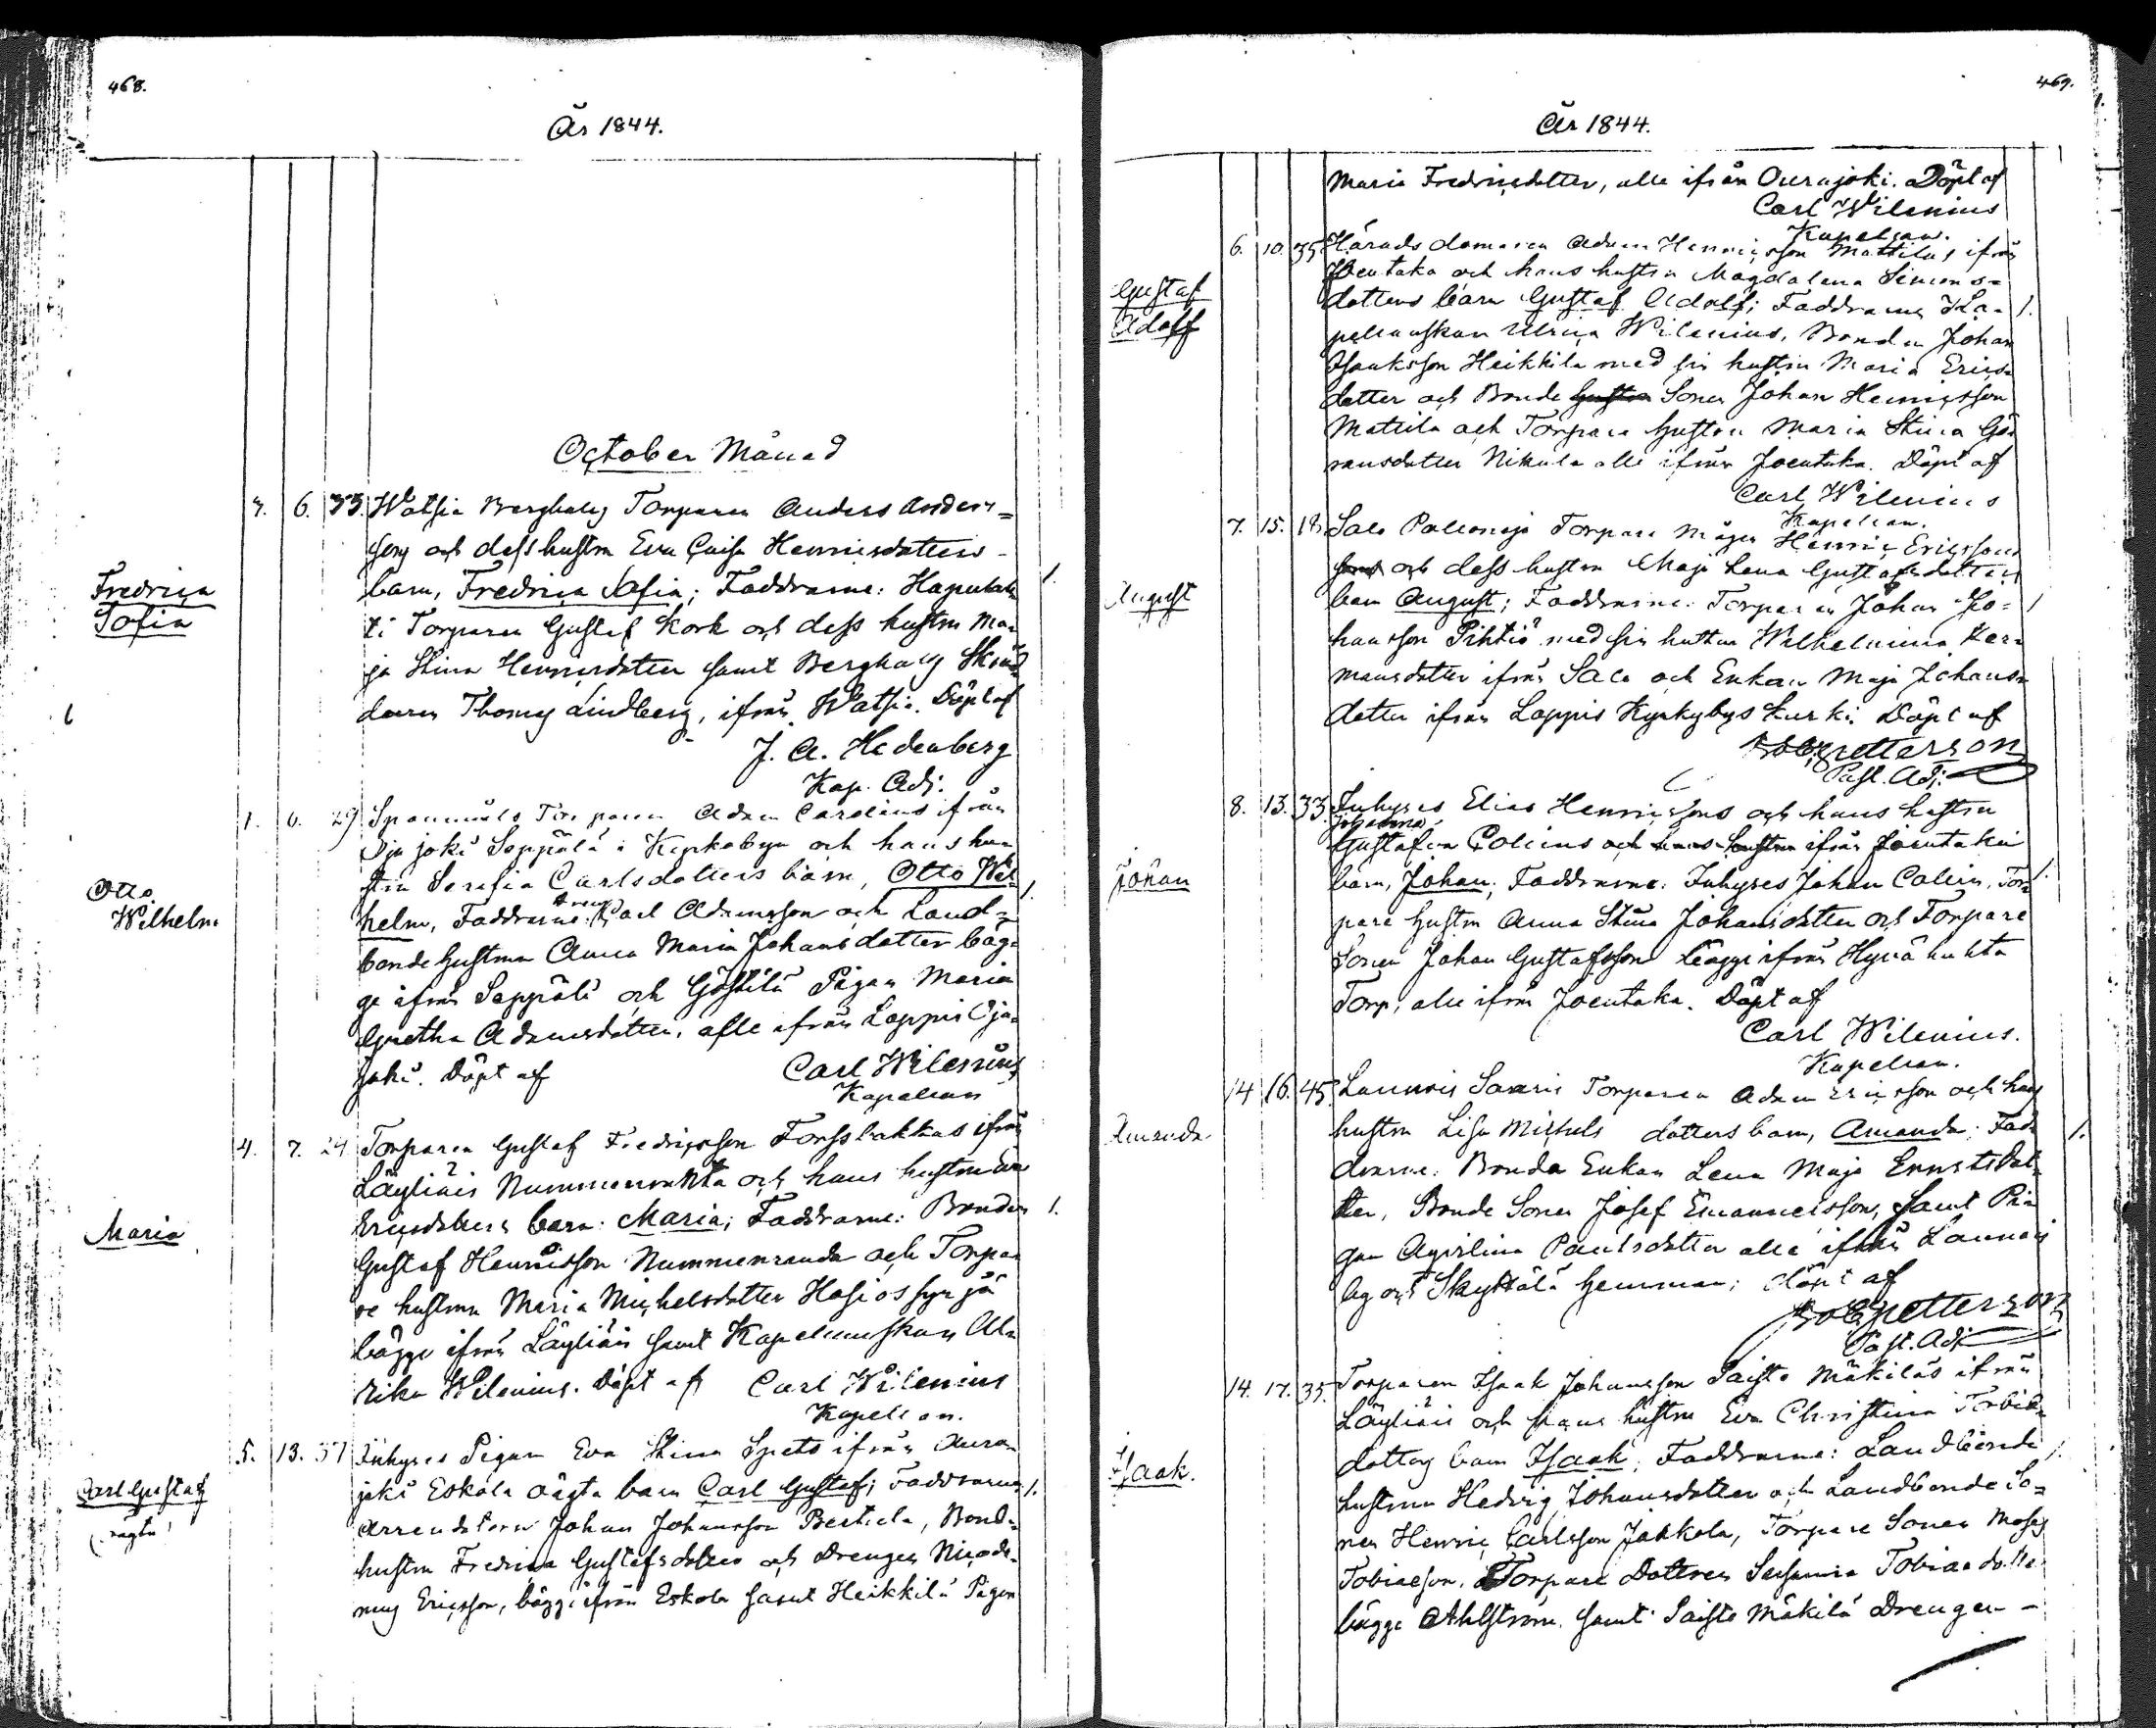 468.
År 1844.
October Månad
3. 6. 33. Watsia Berghalg Torparen Anders Anders=
sons och dess hustru Eva Caisa Henricsdotters
Fredrica
Sofia
barn, Fredrica Sofia; Faddrarne: Haputah 1.
ti Torparen Gustaf Kork och dess hustru Ma=
ja Stina Henricsdotter samt Berghalg Skräd
daren Thomas Lindberg, ifrån Watsia. Döpt af
J. A. Hedenberg
Kap. Adj.
1. 6. 29 Torparen Adam Carolins ifrån
Ojajoki Seppälä i Kyrkobyn och hans hu=
stru Serafia Carlsdotters barn, Otto Wil= 1.
Otto
Wilhelm
helm, Faddrarne: Carl Adamsson och Land=
bonde hustrun Anna Maria Johansdotter bäg=
ge ifrån Seppälä och Göstilä Pigan Maria
Gretha Adamsdotter, alle ifrån Loppis Oja=
joki. Döpt af Carl Wilenius
Kapellan
4. 7. 24 Torparen Gustaf Fredricsson Forssbakkas ifrån
Läyliäis Nummenrahta och hans hustru Eva
Maria
Ericsdotters barn: Maria; Faddrarne: Bonden 1.
Gustaf Henricsson Nummenranda och Torpa=
re hustrun Maria Michelsdotter Hasiossyrjä
bägge ifrån Läyliäis samt Kapellanskan Ul=
rika Wilenius. Döpt af Carl Wilenius
Kapellan.
5. 13. 37 Inhyses Pigan Eva Stina Spets ifrån Ouran
Carl Gustaf
(oägta)
joki Eskola oägta barn Carl Gustaf; Faddrarne 1.
Arrendatorn Johan Johansson Bertiela, Bond=
hustru Fredrica Gustafsdotter och Drengen Nicode=
mus Ericsson, bägge ifrån Eskola samt Heikkilä Pigan
469.
År 1844.
Maria Fredricsdotter, alle ifrån Ourajoki. Döpt af
Carl Wilenius
Kapellan.
6. 10. 35. Häradsdomaren Adam Henricsson Mattilas ifrån
Gustaf
Adolf
Joentaka och hans hustru Magdalena Simons=
dotters barn Gustaf Adolf; Faddrarne Ka= 1.
pellanskan Ulrica Wilenius, Bonden Johan
Isaksson Heikkila med sin hustru Maria Erics
dotter och Bonde Sonen Johan Henricsson
Mattila och Torpare hustru Maria Stina Gö
ransdotter Nikula alle ifrån Joentaka. Döpt af
Carl Wilenius
Kapellan.
7. 15. 18 Salo Torpare mågen Henric Ericssons
och dess hustru Maja Lena Gustafsdotters
August
barn August; Faddrarne: Torparen Johan Jo= 1
hansson Pihtiö med sin hustru Wilhelmina Her=
mansdotter ifrån Salo och Enkan Maja Johans=
dotter ifrån Loppis Kyrkobys Kurki. Döpt af
petterson
Past. Adj.
8. 13. 33. Inhyses Elias Henricssons och hans hustru
Johanna
Gustafva Colins och ifrån Joentaka
Johan
barn, Johan; Faddrarne: Inhyses Johan Colin, Tor= 1.
pare hustru Anna Stina Johansdotter och Torpare
Sonen Johan Gustafsson bägge ifrån Hyvä huhta
Torp, alle ifrån Joentaka. Döpt af
Carl Wilenius.
Kapellan.
14 16. 45. Launois Saaris Torparen Adam Ericsson och hans
Amanda
hustru Lisa Michels dotters barn, Amanda; Fad= 1.
drarne: Bonde Enkan Lena Maja Ernstsdot=
ter, Bonde Sonen Josef Emanuelsson, samt Pi=
gan Agvilina Paulsdotter alle ifrån Launois
by och Skyttälä hemman; döpt af
petterson
Past. Adj.
14. 17. 35. Torparen Isaak Johansson Saisto Mäkiläs ifrån
Läyliäis och hans hustru Eva Christina Tobias
Isaak.
dotters barn Isaak; Faddrarne: Landbonde 1.
hustrun Hedvig Johansdotter och Landbonde So=
nen Henric Carlsson Jakkola, Torpare Sonen Moses
Tobiasson, Torpare Dottren Susanna Tobiasdotter
bägge Ahlström samt Saisto Mäkilä Drengen -